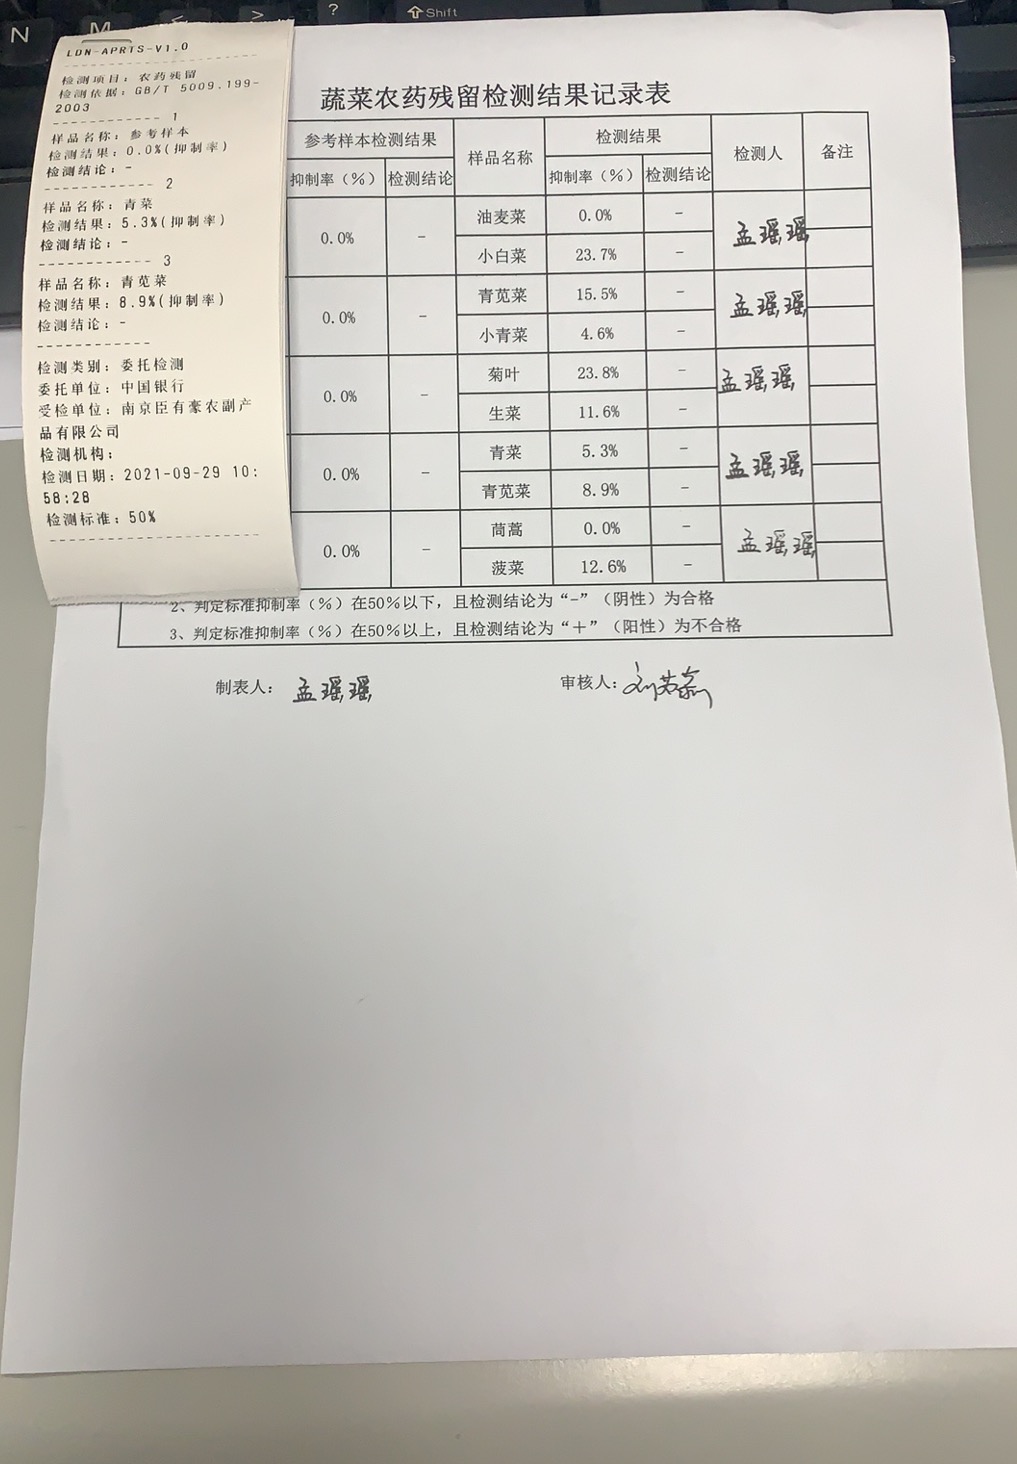 N
M
<
>
?
Shift
LDN-APRTS-V1.0
检测项目：农药残留
检测依据：GB/T 5009.199-
2003
------------ 1
样品名称：参考样本
检测结果：0.0%(抑制率)
检测结论：-
------------ 2
样品名称：青菜
检测结果：5.3%(抑制率)
检测结论：-
------------ 3
样品名称：青苋菜
检测结果：8.9%(抑制率)
检测结论：-
------------
检测类别：委托检测
委托单位：中国银行
受检单位：南京臣有豪农副产
品有限公司
检测机构：
检测日期：2021-09-29 10:
58:28
检测标准：50%
蔬菜农药残留检测结果记录表
参考样本检测结果 样品名称 检测结果 检测人 备注
抑制率（%） 检测结论 抑制率（%） 检测结论
0.0% － 油麦菜 0.0% － 孟瑶瑶
小白菜 23.7% －
0.0% － 青苋菜 15.5% － 孟瑶瑶
小青菜 4.6% －
0.0% － 菊叶 23.8% － 孟瑶瑶
生菜 11.6% －
0.0% － 青菜 5.3% － 孟瑶瑶
青苋菜 8.9% －
0.0% － 茼蒿 0.0% － 孟瑶瑶
菠菜 12.6% －
2、判定标准抑制率（%）在50%以下，且检测结论为“-”（阴性）为合格
3、判定标准抑制率（%）在50%以上，且检测结论为“＋”（阳性）为不合格
制表人：孟瑶瑶 审核人：